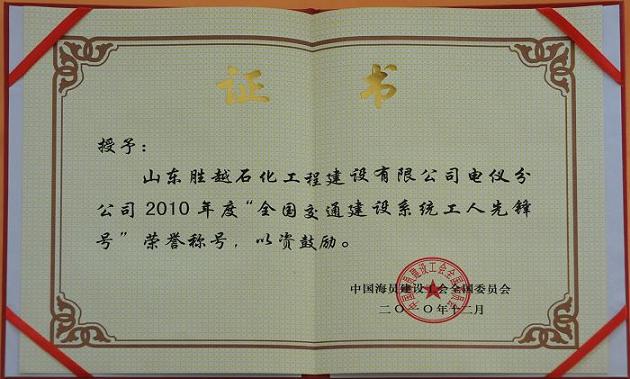 证书
授予：
山东胜越石化工程建设有限公司电仪分
公司2010年度“全国交通建设系统工人先锋
号”荣誉称号，以资鼓励。
中国海员建设工会全国委员会
二〇一〇年十二月
中国海员建设工会全国委员会